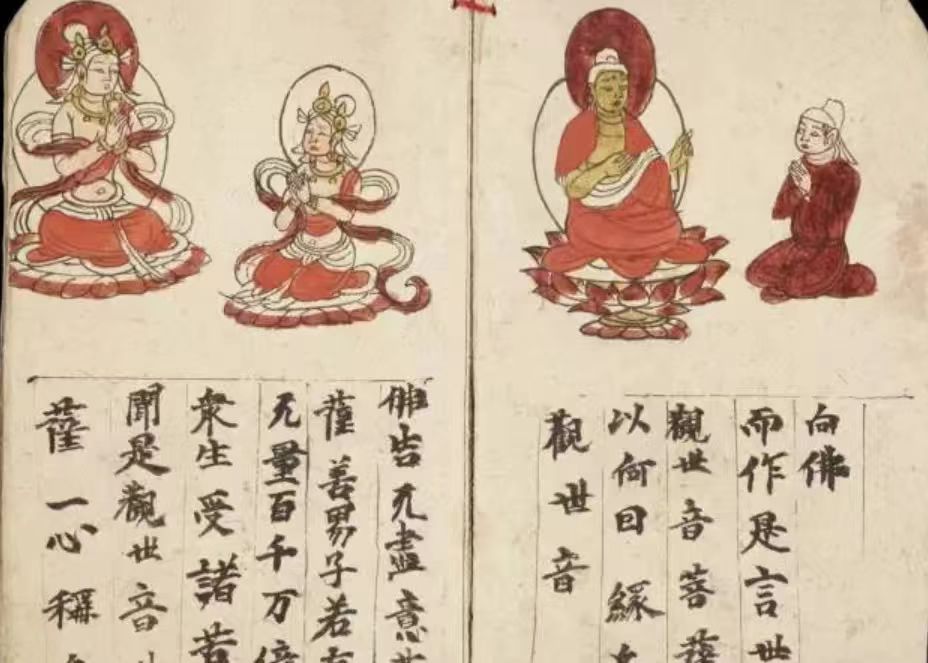 向佛
而作是言世
觀世音菩薩
以何因緣
觀世音
佛告无盡意菩
薩善男子若有
无量百千万億
衆生受諸苦
聞是觀世音
薩一心稱